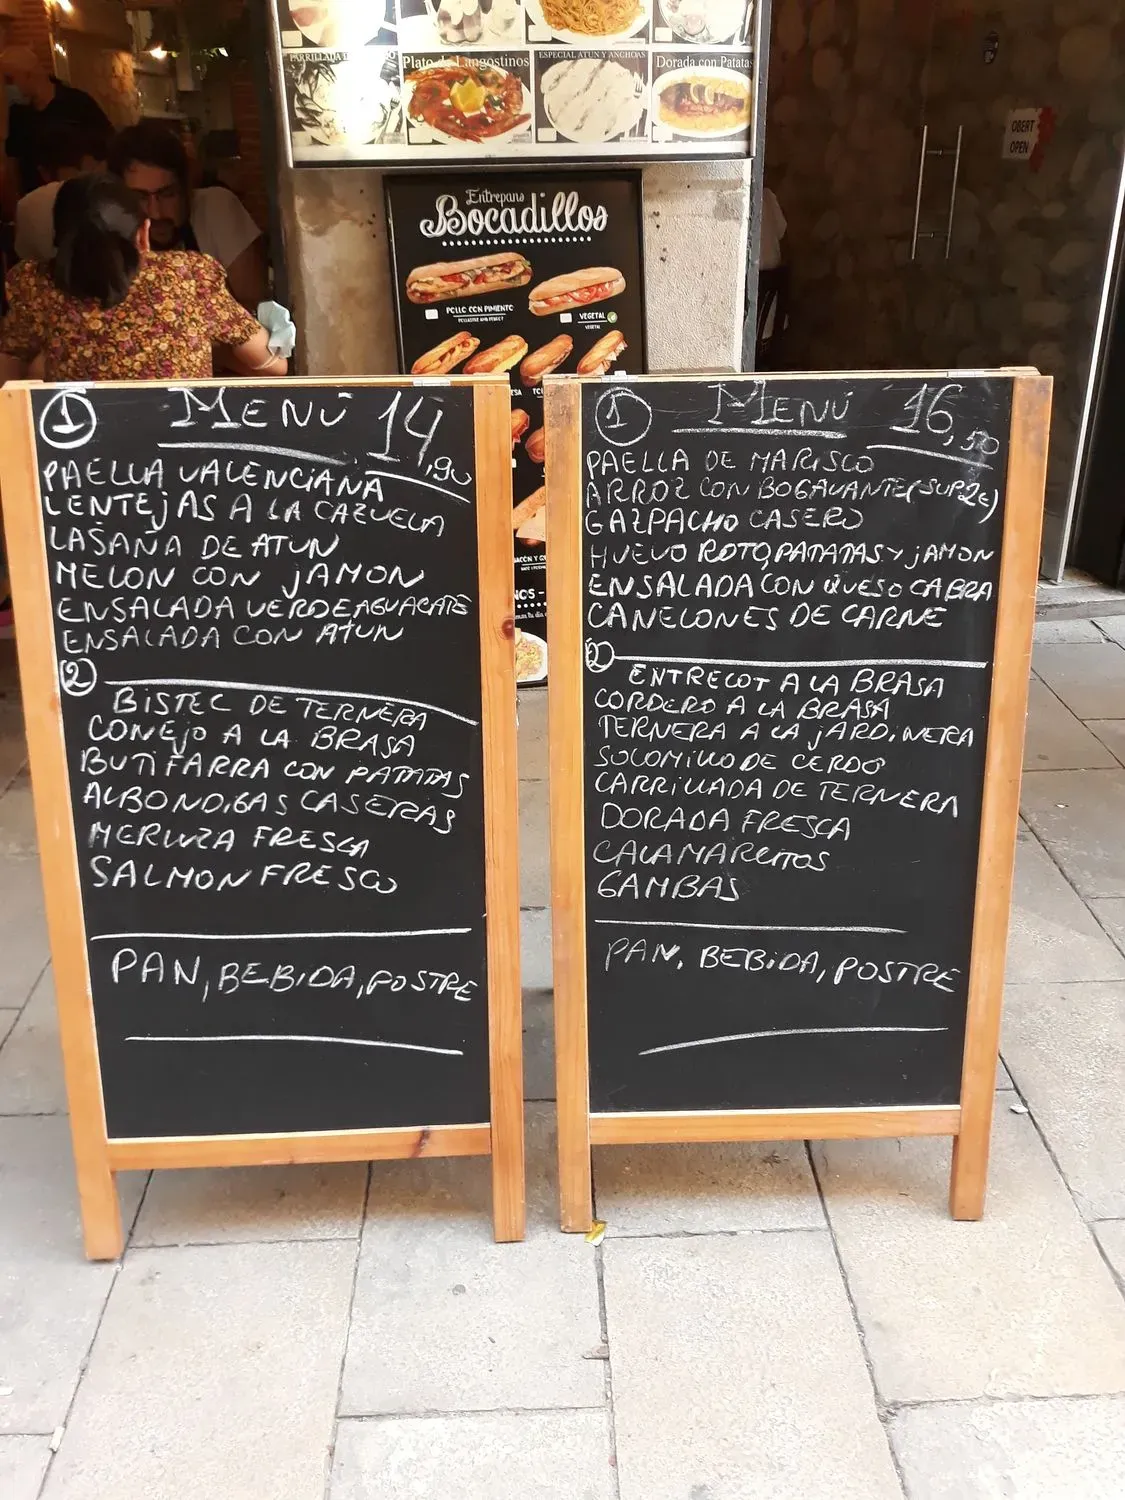 Plato de Langostinos
ESPECIAL ATUN Y ANCHOAS
Dorada con Patatas
OBERT
OPEN
Entrepans
Bocadillos
POLLO CON PIMIENTO
VEGETAL
VEGETAL
1 MENÚ 14,90
PAELLA VALENCIANA
LENTEJAS A LA CAZUELA
LASAÑA DE ATUN
MELON CON JAMON
ENSALADA VERDE AGUACATE
ENSALADA CON ATUN
2
BISTEC DE TERNERA
CONEJO A LA BRASA
BUTIFARRA CON PATATAS
ALBONDIGAS CASERAS
MERLUZA FRESCA
SALMON FRESCO
PAN, BEBIDA, POSTRE
1 MENÚ 16,50
PAELLA DE MARISCO
ARROZ CON BOGAVANTE (SUP 2€)
GAZPACHO CASERO
HUEVO ROTO, PATATAS Y JAMON
ENSALADA CON QUESO CABRA
CANELONES DE CARNE
2
ENTRECOT A LA BRASA
CORDERO A LA BRASA
TERNERA A LA JARDINERA
SOLOMILLO DE CERDO
CARRILLADA DE TERNERA
DORADA FRESCA
CALAMARCITOS
GAMBAS
PAN, BEBIDA, POSTRE